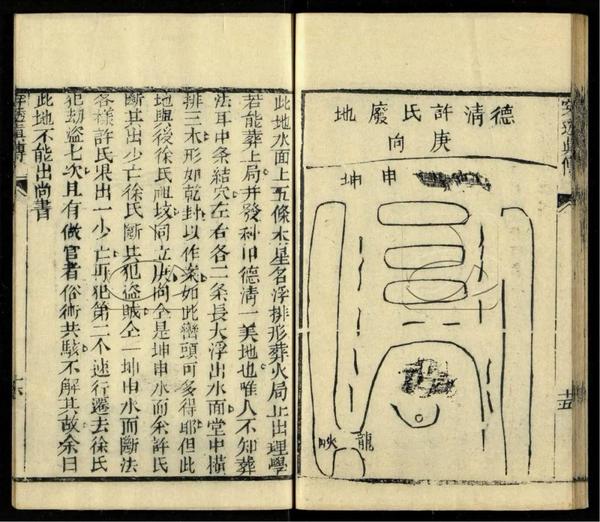 德清許氏廢地
庚向
申坤
龍峽
十五
此地水面上五條木星名浮排形葬火局上出理學
若能葬上局并發科甲德清一美地也唯人不知葬
法耳中条結穴左右各二条長大浮出水面堂中橫
排三木形如乾卦以作案如此巒頭可多得耶但此
地與後徐氏祖坟同立庚向仝是坤申水而余許氏
斷其出少亡徐氏斷其犯盜賊仝一坤申水而斷法
各樣許氏果出一少亡再犯第二个速行遷去徐氏
犯劫盜七次且有做官者俗術共駭不解其故余曰
此地不能出尚書